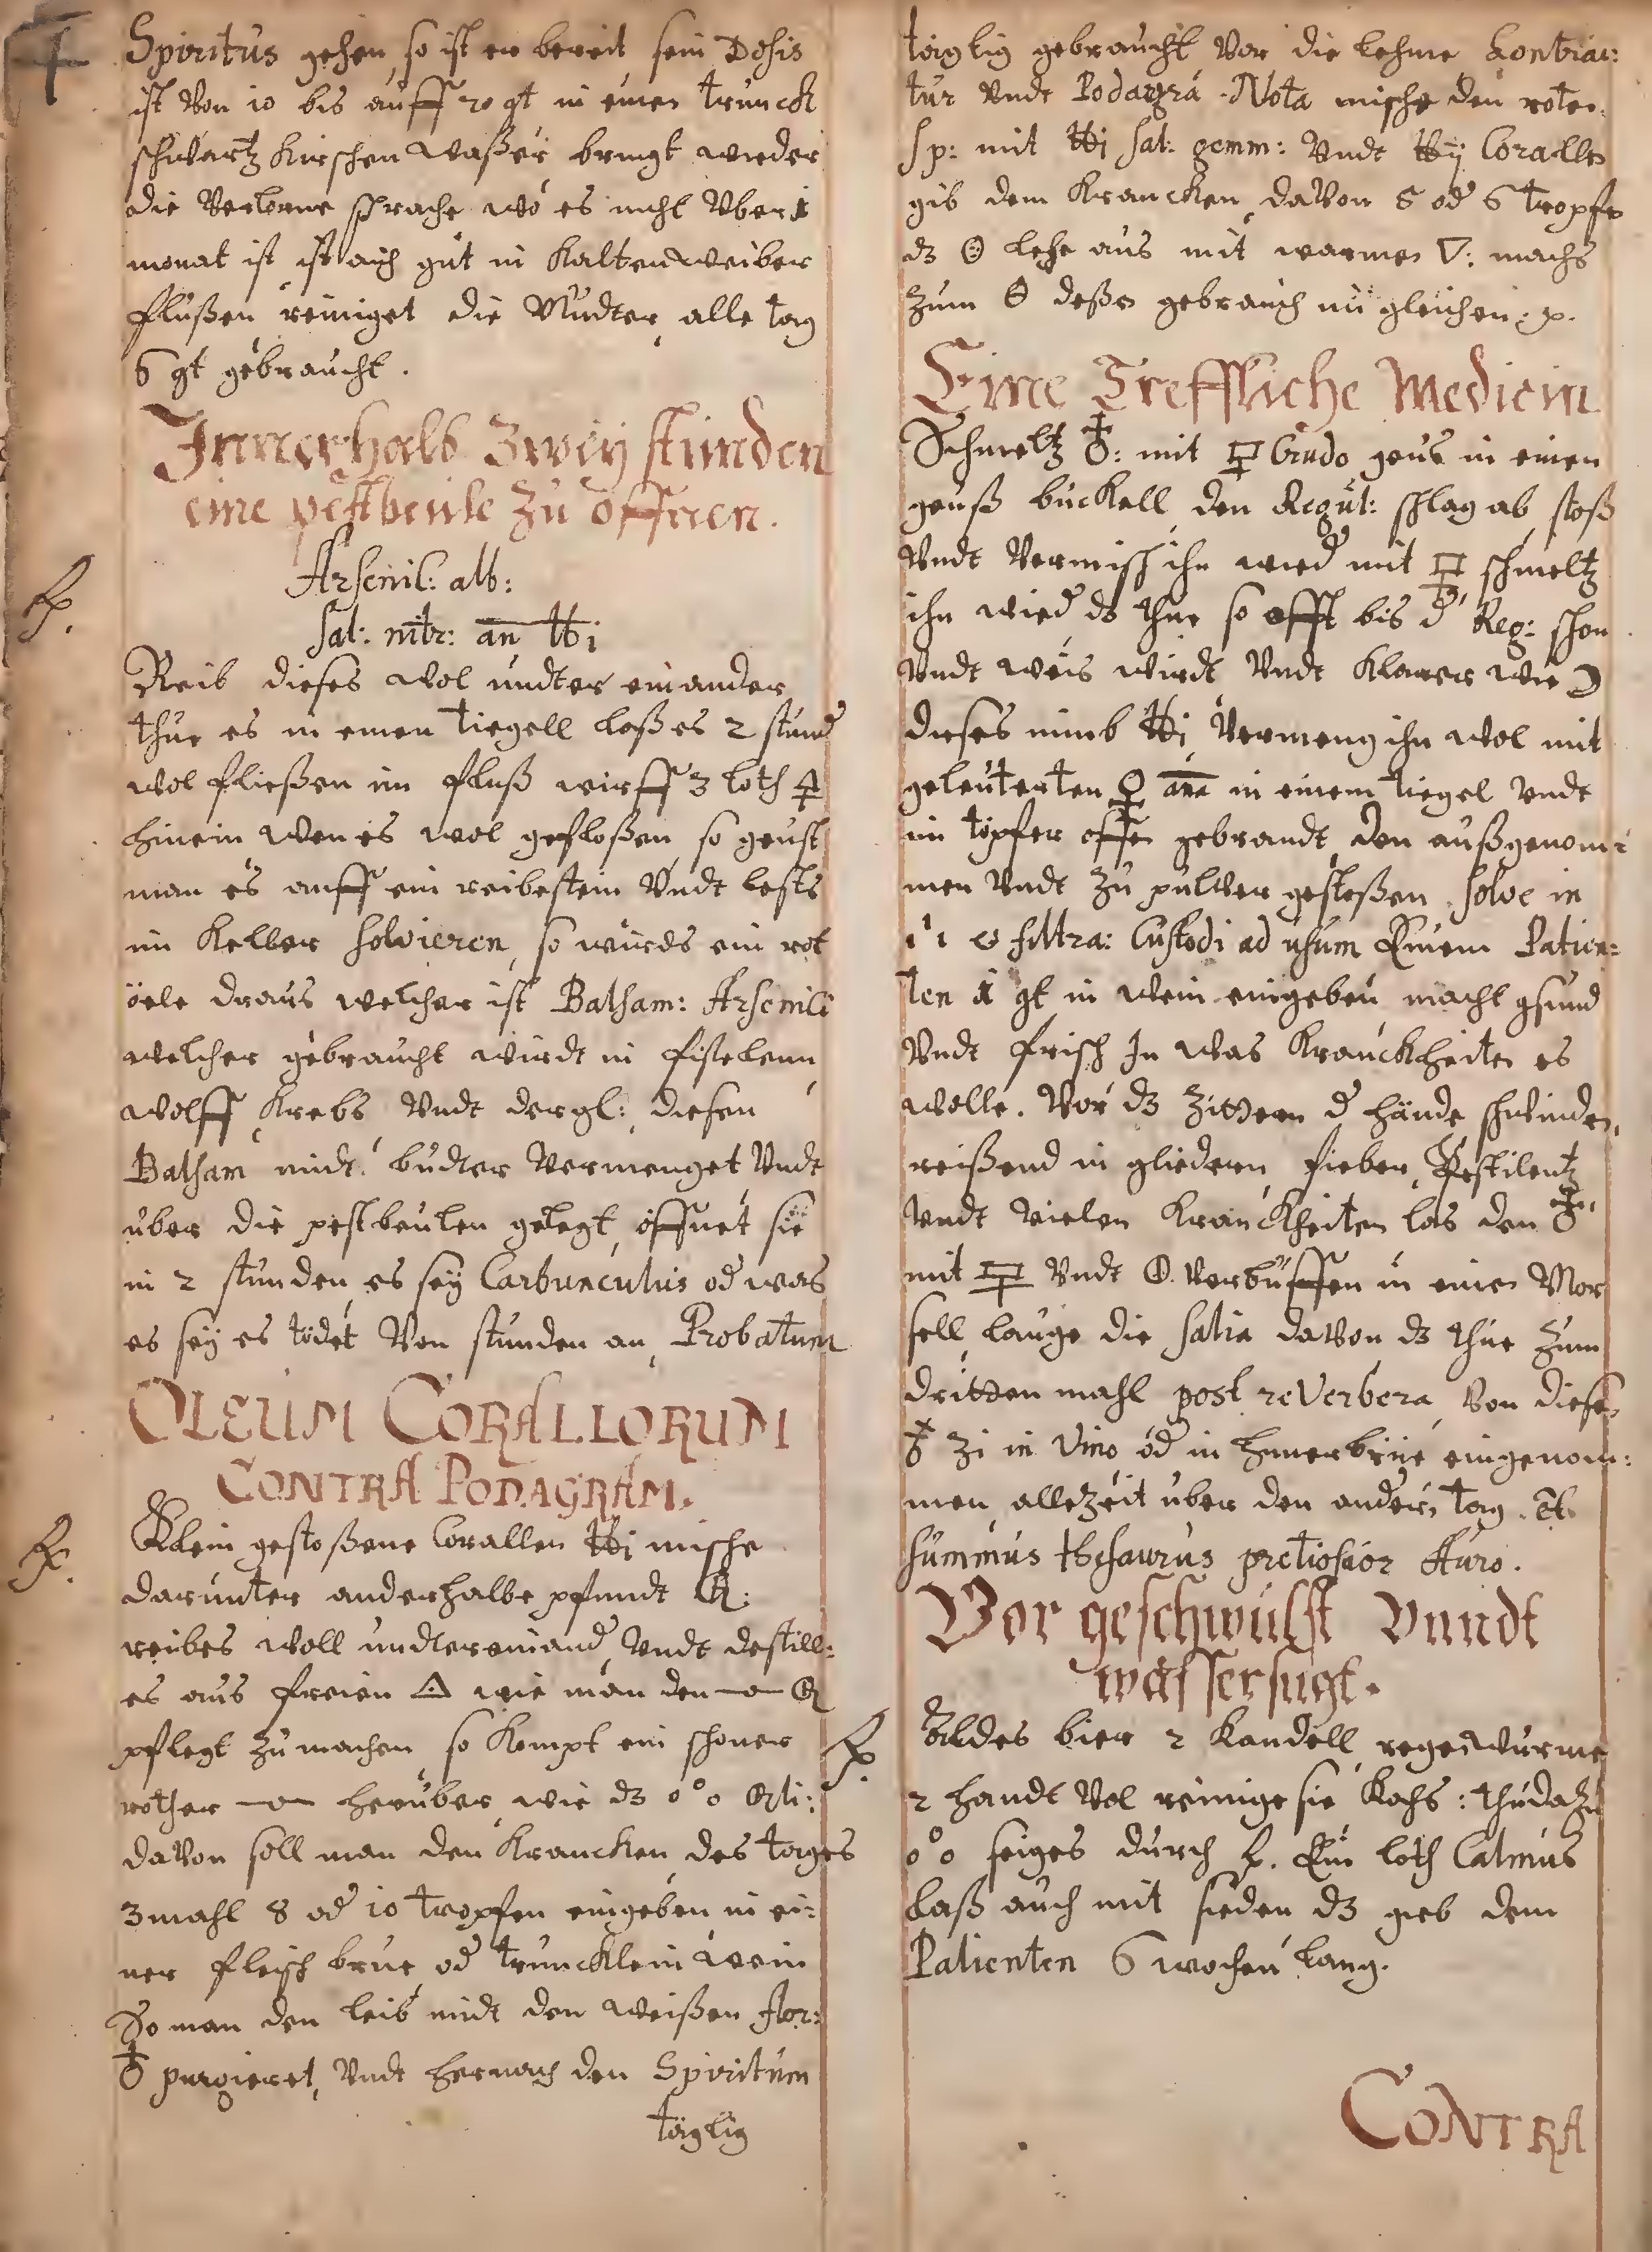 Spiritus gehen, so ist er bereit sein Dosis
ist von 10 bis auff 20 gt in einen trunck
schwartz Kirschen waßer bringt wieder
die verlorne sprache wo es nicht uber 1
monat ist ist auch gut in Kalten weiber
flußen reiniget die Mudter, alle tag
6 gt gebraucht.
Innerhalb zweÿ stunden
eine pestbeule zu öffnen.
Arsenic: alb:
Sal: nitr: an ℔ i
Reib dieses wol undter einander
thue es in einen tiegell laß es 2 stund
wol fließen im fluß wirff 3 loth 🜍
hinein wen es wol gefloßen, so geust
man es auff ein reibestein undt lests
im Keller solvieren, so wirds ein rot
öele draus welcher ist Balsam: Arsenici
welcher gebraucht wirdt in fistelenn
wolff, Krebs undt dergl: diesen
Balsam midt budter vermenget undt
uber die pestbeulen gelegt, öffnet sie
in 2 stunden es seÿ Carbunculus od was
es seÿ es tödet von stunden an, Probatum
OLEUM CORALLORUM
CONTRA PODAGRAM.
Klein gestoßene Corallen ℔ i mische
darunter anderhalbe pfundt
reibes woll undtereinand undt destill:
es aus freien 🜂 wie man den
pflegt zu machen, so Kompt ein schoner
rother herüber wie dz
davon soll man den Krancken des tages
3 mahl 8 od 10 tropfen eingeben in ei:
ner fleisch brue od truncklein wein
So man den leib midt den weißen flor:
♁ purgieret, undt hernach den Spiritum
täglig
täglig gebraucht vor die lehme Contrac:
tur undt Podagra Nota mische den roten
Sp: mit ℔ i Sal: gemm: undt ℔ ij Coralle
gib dem Krancken davon 5 od 6 tropfe
dz lehe aus mit warmen 🜄: machs
zum deßen gebrauch im gleichen.
Eine Treffliche Medicin
Schmeltz ♁: mit Crudo geus in einen
geuß buckell den Regul: schlag ab, stoß
undt vermisch ihn wied mit schmeltz
ihn wied ds thue so offt bis d Reg: schon
undt weis wirdt undt Klarer wie ☽
dieses nimb ℔ i vermeng ihn wol mit
geleuterten ana in einem tiegel undt
im töpfer offen gebrandt, den außgenom:
men undt zu pulver gestoßen. solve in
filtra: Custodi ad usum Einem Patien:
ten 1 gt in wein eingeben macht gsund
undt frisch In was Kranckheiten es
wolle. Vor dz zittern d hände schwinden,
reißend in gliedern, fieber, Pestilentz
undt vielen Kranckheiten las den ♁
mit undt verbuffen in einen Mor
sell, lauge die salia davon dz thue zum
dritten mahl post reverbera von diesen
♁ ʒi in vino od in huner brue eingenom:
men, allezeit uber den andern tag. Est
summus thesaurus pretiosior Auro.
Vor geschwulst Vnndt
wassersugt.
Aldes bier 2 Kandell regenwurme
2 handt vol reinige sie Kochs: thu dazu
seiges durch Ein loth Calmus
laß auch mit sieden dz gieb dem
Patienten 6 wochen lang.
CONTRA